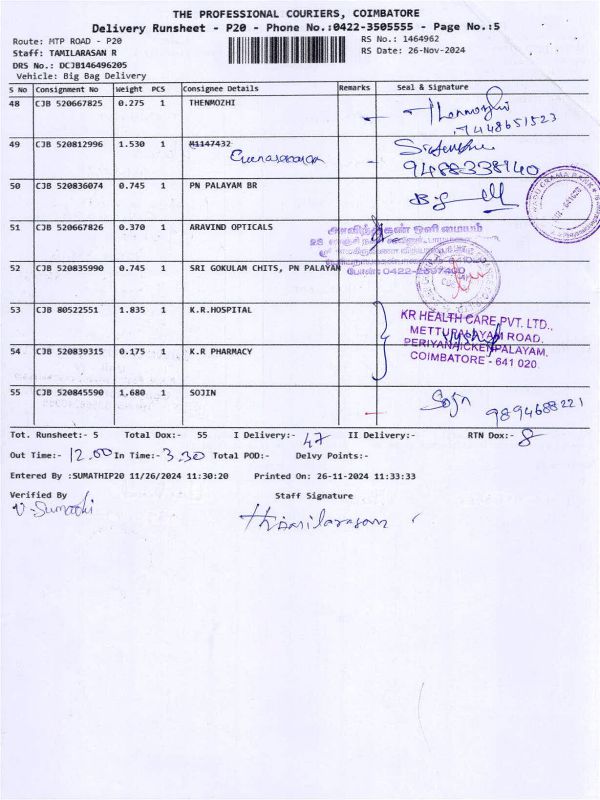 THE PROFESSIONAL COURIERS, COIMBATORE
Delivery Runsheet - P20 - Phone No.:0422-3505555 - Page No.:5
Route: MTP ROAD - P20
RS No.: 1464962
Staff: TAMILARASAN R
RS Date: 26-Nov-2024
DRS No.: DCJB146496205
Vehicle: Big Bag Delivery
S No Consignment No Weight PCS Consignee Details Remarks Seal & Signature
48 CJB 520667825 0.275 1 THENMOZHI
Thenmozhi
7448651523
49 CJB 520812996 1.530 1 M1147432
9488338140
50 CJB 520836074 0.745 1 PN PALAYAM BR
51 CJB 520667826 0.370 1 ARAVIND OPTICALS
அரவிந்தகண் ஒளி மையம்
52 CJB 520835990 0.745 1 SRI GOKULAM CHITS, PN PALAYAM
53 CJB 80522551 1.835 1 K.R.HOSPITAL
KR HEALTH CARE PVT. LTD.,
METTUPALAYAM ROAD,
PERIYANAICKENPALAYAM,
COIMBATORE - 641 020.
54 CJB 520839315 0.175 1 K.R PHARMACY
55 CJB 520845590 1.680 1 SOJIN
Sojn
9894688221
Tot. Runsheet:- 5 Total Dox:- 55 I Delivery:- 47 II Delivery:- RTN Dox:- 8
Out Time:- 12.00 In Time:- 3.30 Total POD:- Delvy Points:-
Entered By :SUMATHIP20 11/26/2024 11:30:20 Printed On: 26-11-2024 11:33:33
Verified By Staff Signature
V. Sumathi